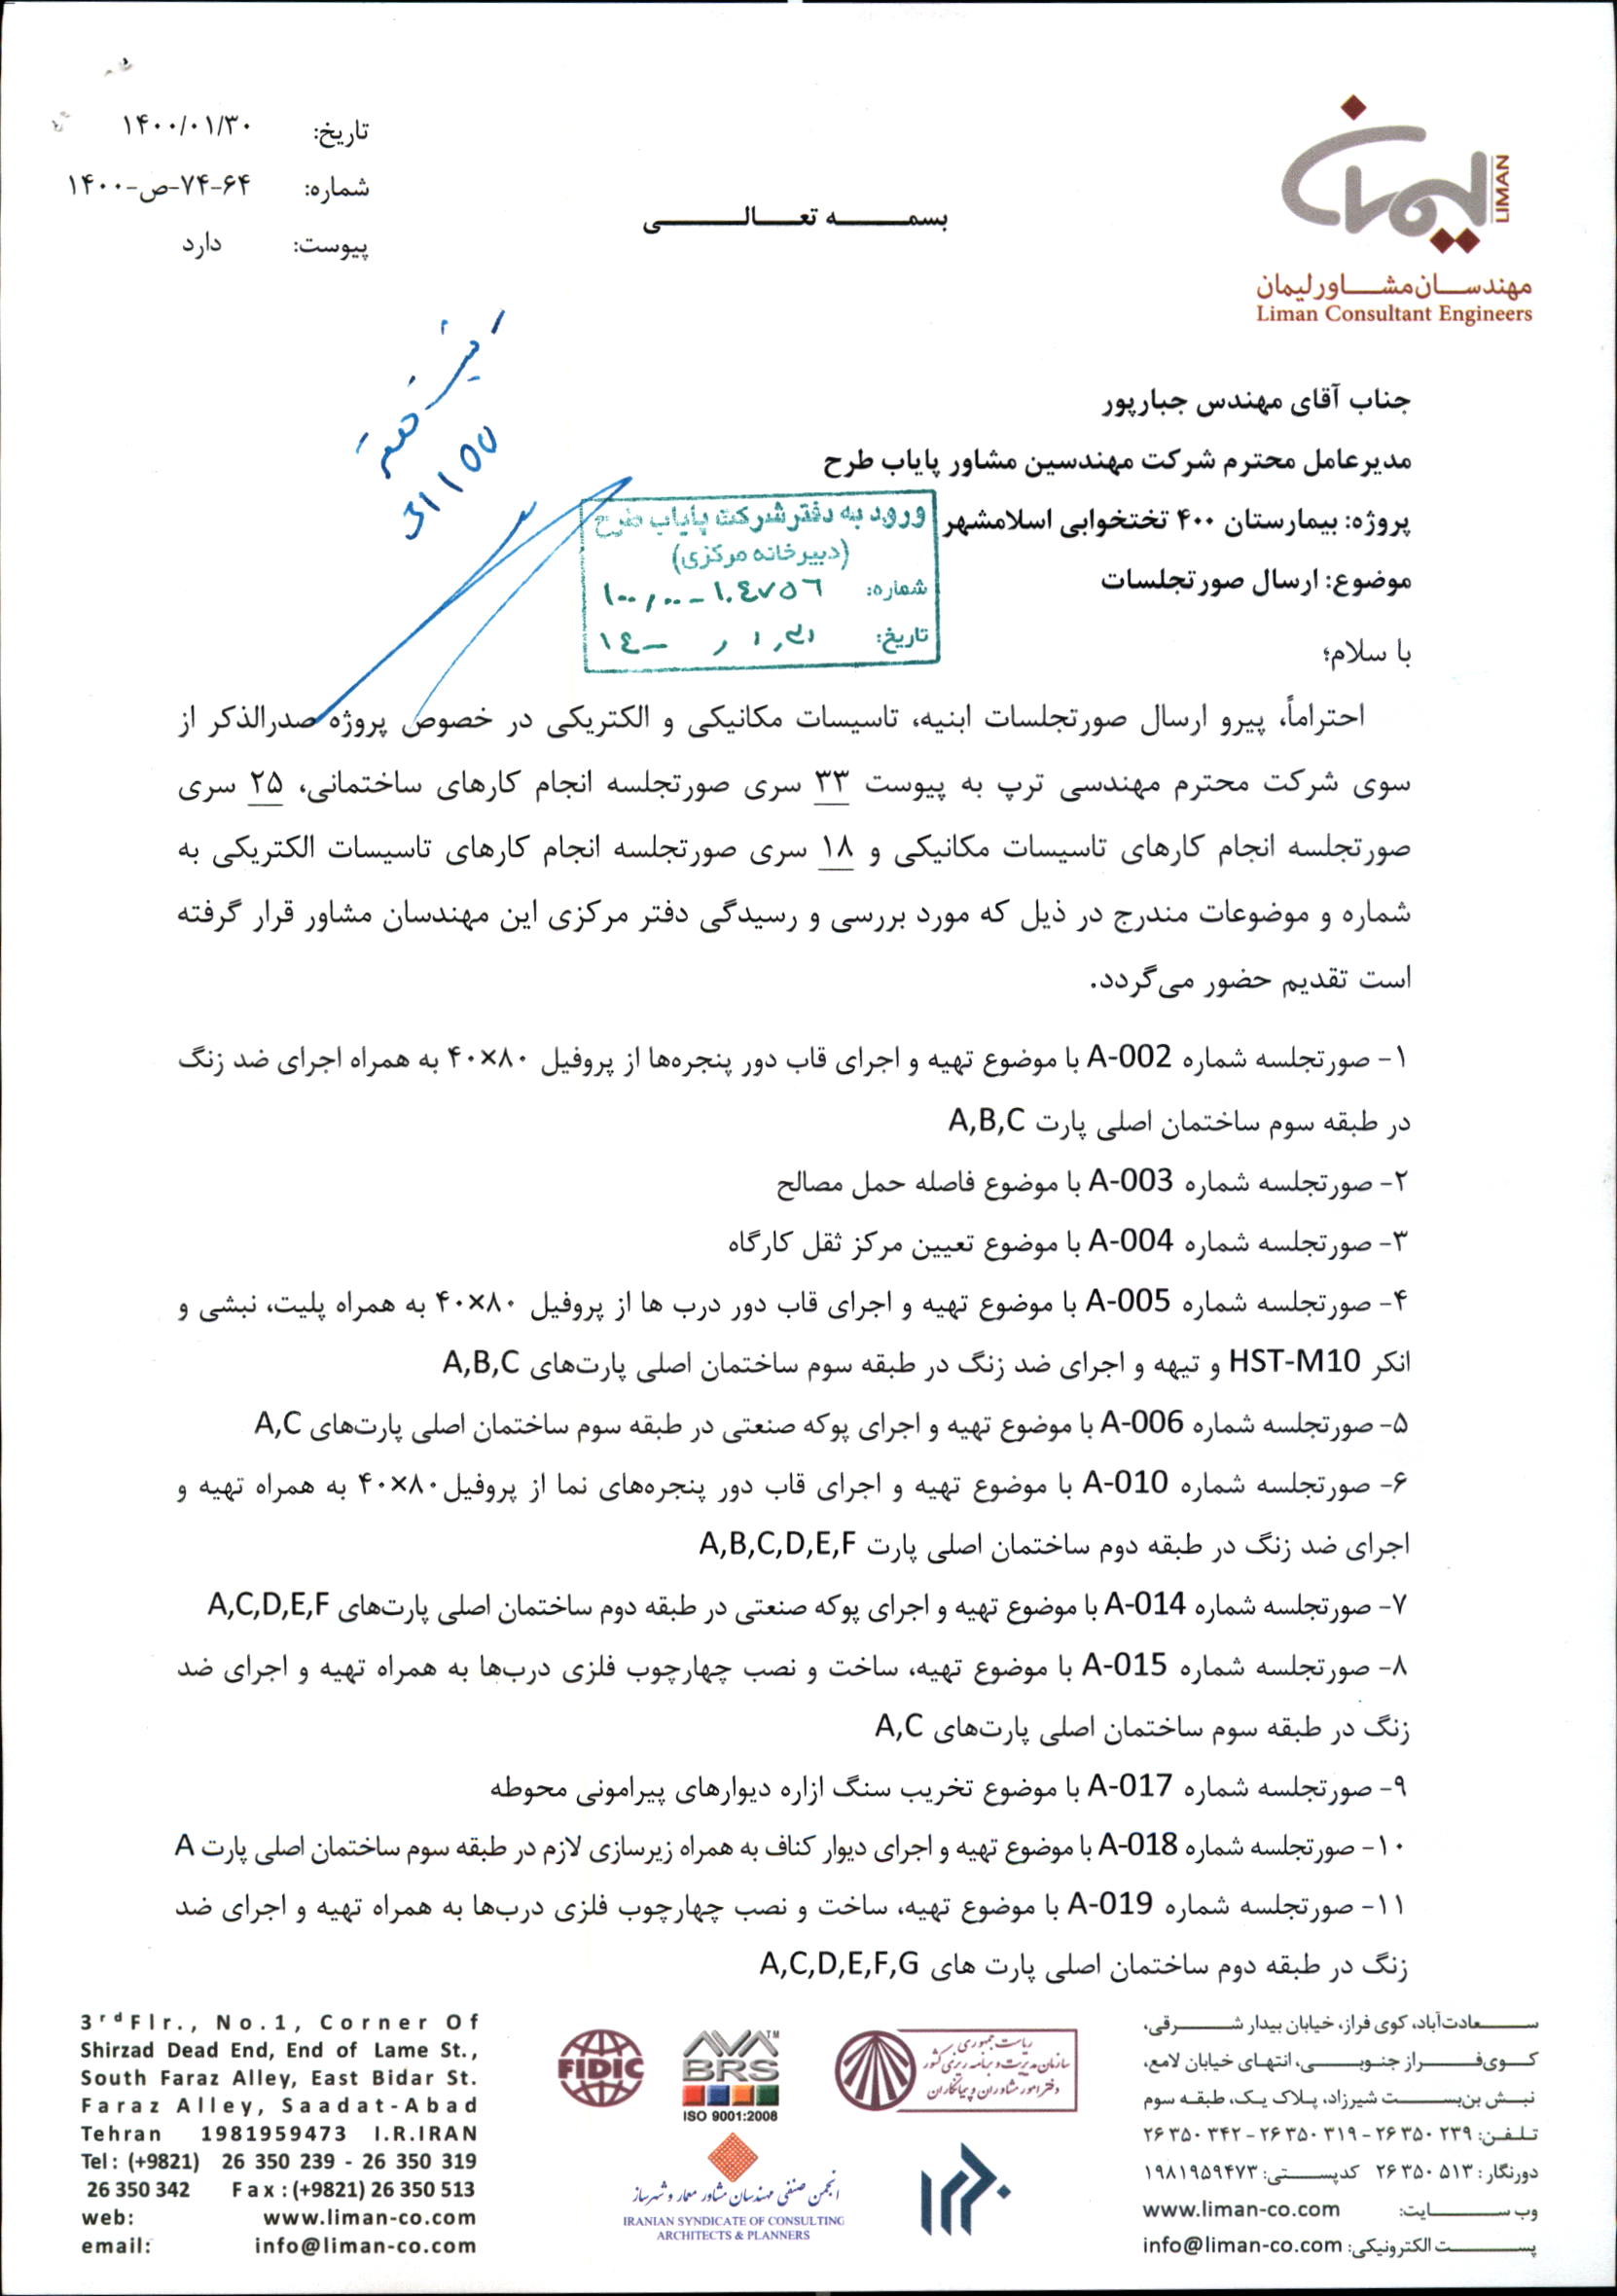 تاریخ: ۱۴۰۰/۰۱/۳۰
شماره: ۶۴-۷۴-ص-۱۴۰۰
پیوست: دارد
بسمه تعالی
لیمان
LIMAN
مهندسان مشاور لیمان
Liman Consultant Engineers
جناب آقای مهندس جبارپور
مدیرعامل محترم شرکت مهندسین مشاور پایاب طرح
پروژه: بیمارستان ۴۰۰ تختخوابی اسلامشهر
موضوع: ارسال صورتجلسات
ورود به دفتر شرکت پایاب طرح
(دبیرخانه مرکزی)
شماره:
تاریخ:
با سلام؛
احتراماً، پیرو ارسال صورتجلسات ابنیه، تاسیسات مکانیکی و الکتریکی در خصوص پروژه صدرالذکر از
سوی شرکت محترم مهندسی ترپ به پیوست ۳۳ سری صورتجلسه انجام کارهای ساختمانی، ۲۵ سری
صورتجلسه انجام کارهای تاسیسات مکانیکی و ۱۸ سری صورتجلسه انجام کارهای تاسیسات الکتریکی به
شماره و موضوعات مندرج در ذیل که مورد بررسی و رسیدگی دفتر مرکزی این مهندسان مشاور قرار گرفته
است تقدیم حضور می‌گردد.
۱- صورتجلسه شماره A-002 با موضوع تهیه و اجرای قاب دور پنجره‌ها از پروفیل ۸۰×۴۰ به همراه اجرای ضد زنگ
در طبقه سوم ساختمان اصلی پارت A,B,C
۲- صورتجلسه شماره A-003 با موضوع فاصله حمل مصالح
۳- صورتجلسه شماره A-004 با موضوع تعیین مرکز ثقل کارگاه
۴- صورتجلسه شماره A-005 با موضوع تهیه و اجرای قاب دور درب ها از پروفیل ۸۰×۴۰ به همراه پلیت، نبشی و
انکر HST-M10 و تیهه و اجرای ضد زنگ در طبقه سوم ساختمان اصلی پارت‌های A,B,C
۵- صورتجلسه شماره A-006 با موضوع تهیه و اجرای پوکه صنعتی در طبقه سوم ساختمان اصلی پارت‌های A,C
۶- صورتجلسه شماره A-010 با موضوع تهیه و اجرای قاب دور پنجره‌های نما از پروفیل۸۰×۴۰ به همراه تهیه و
اجرای ضد زنگ در طبقه دوم ساختمان اصلی پارت A,B,C,D,E,F
۷- صورتجلسه شماره A-014 با موضوع تهیه و اجرای پوکه صنعتی در طبقه دوم ساختمان اصلی پارت‌های A,C,D,E,F
۸- صورتجلسه شماره A-015 با موضوع تهیه، ساخت و نصب چهارچوب فلزی درب‌ها به همراه تهیه و اجرای ضد
زنگ در طبقه سوم ساختمان اصلی پارت‌های A,C
۹- صورتجلسه شماره A-017 با موضوع تخریب سنگ ازاره دیوارهای پیرامونی محوطه
۱۰- صورتجلسه شماره A-018 با موضوع تهیه و اجرای دیوار کناف به همراه زیرسازی لازم در طبقه سوم ساختمان اصلی پارت A
۱۱- صورتجلسه شماره A-019 با موضوع تهیه، ساخت و نصب چهارچوب فلزی درب‌ها به همراه تهیه و اجرای ضد
زنگ در طبقه دوم ساختمان اصلی پارت های A,C,D,E,F,G
سعادت‌آباد، کوی فراز، خیابان بیدار شرقی،
کوی‌فراز جنوبی، انتهای خیابان لامع،
نبش بن‌بست شیرزاد، پلاک یک، طبقه سوم
تلفن: ۲۶۳۵۰۲۳۹ - ۲۶۳۵۰۳۱۹ - ۲۶۳۵۰۳۴۲
دورنگار: ۲۶۳۵۰۵۱۳ کدپستی: ۱۹۸۱۹۵۹۴۷۳
وب سایت: www.liman-co.com
پست الکترونیکی: info@liman-co.com
ریاست جمهوری
سازمان مدیریت و برنامه ریزی کشور
دفتر امور مشاوران و پیمانکاران
AVA™
BRS
ISO 9001:2008
FIDIC
انجمن صنفی مهندسان مشاور معمار و شهرساز
IRANIAN SYNDICATE OF CONSULTING
ARCHITECTS & PLANNERS
3rd Flr., No.1, Corner Of
Shirzad Dead End, End of Lame St.,
South Faraz Alley, East Bidar St.
Faraz Alley, Saadat-Abad
Tehran 1981959473 I.R.IRAN
Tel: (+9821) 26 350 239 - 26 350 319
26 350 342 Fax:(+9821) 26 350 513
web: www.liman-co.com
email: info@liman-co.com